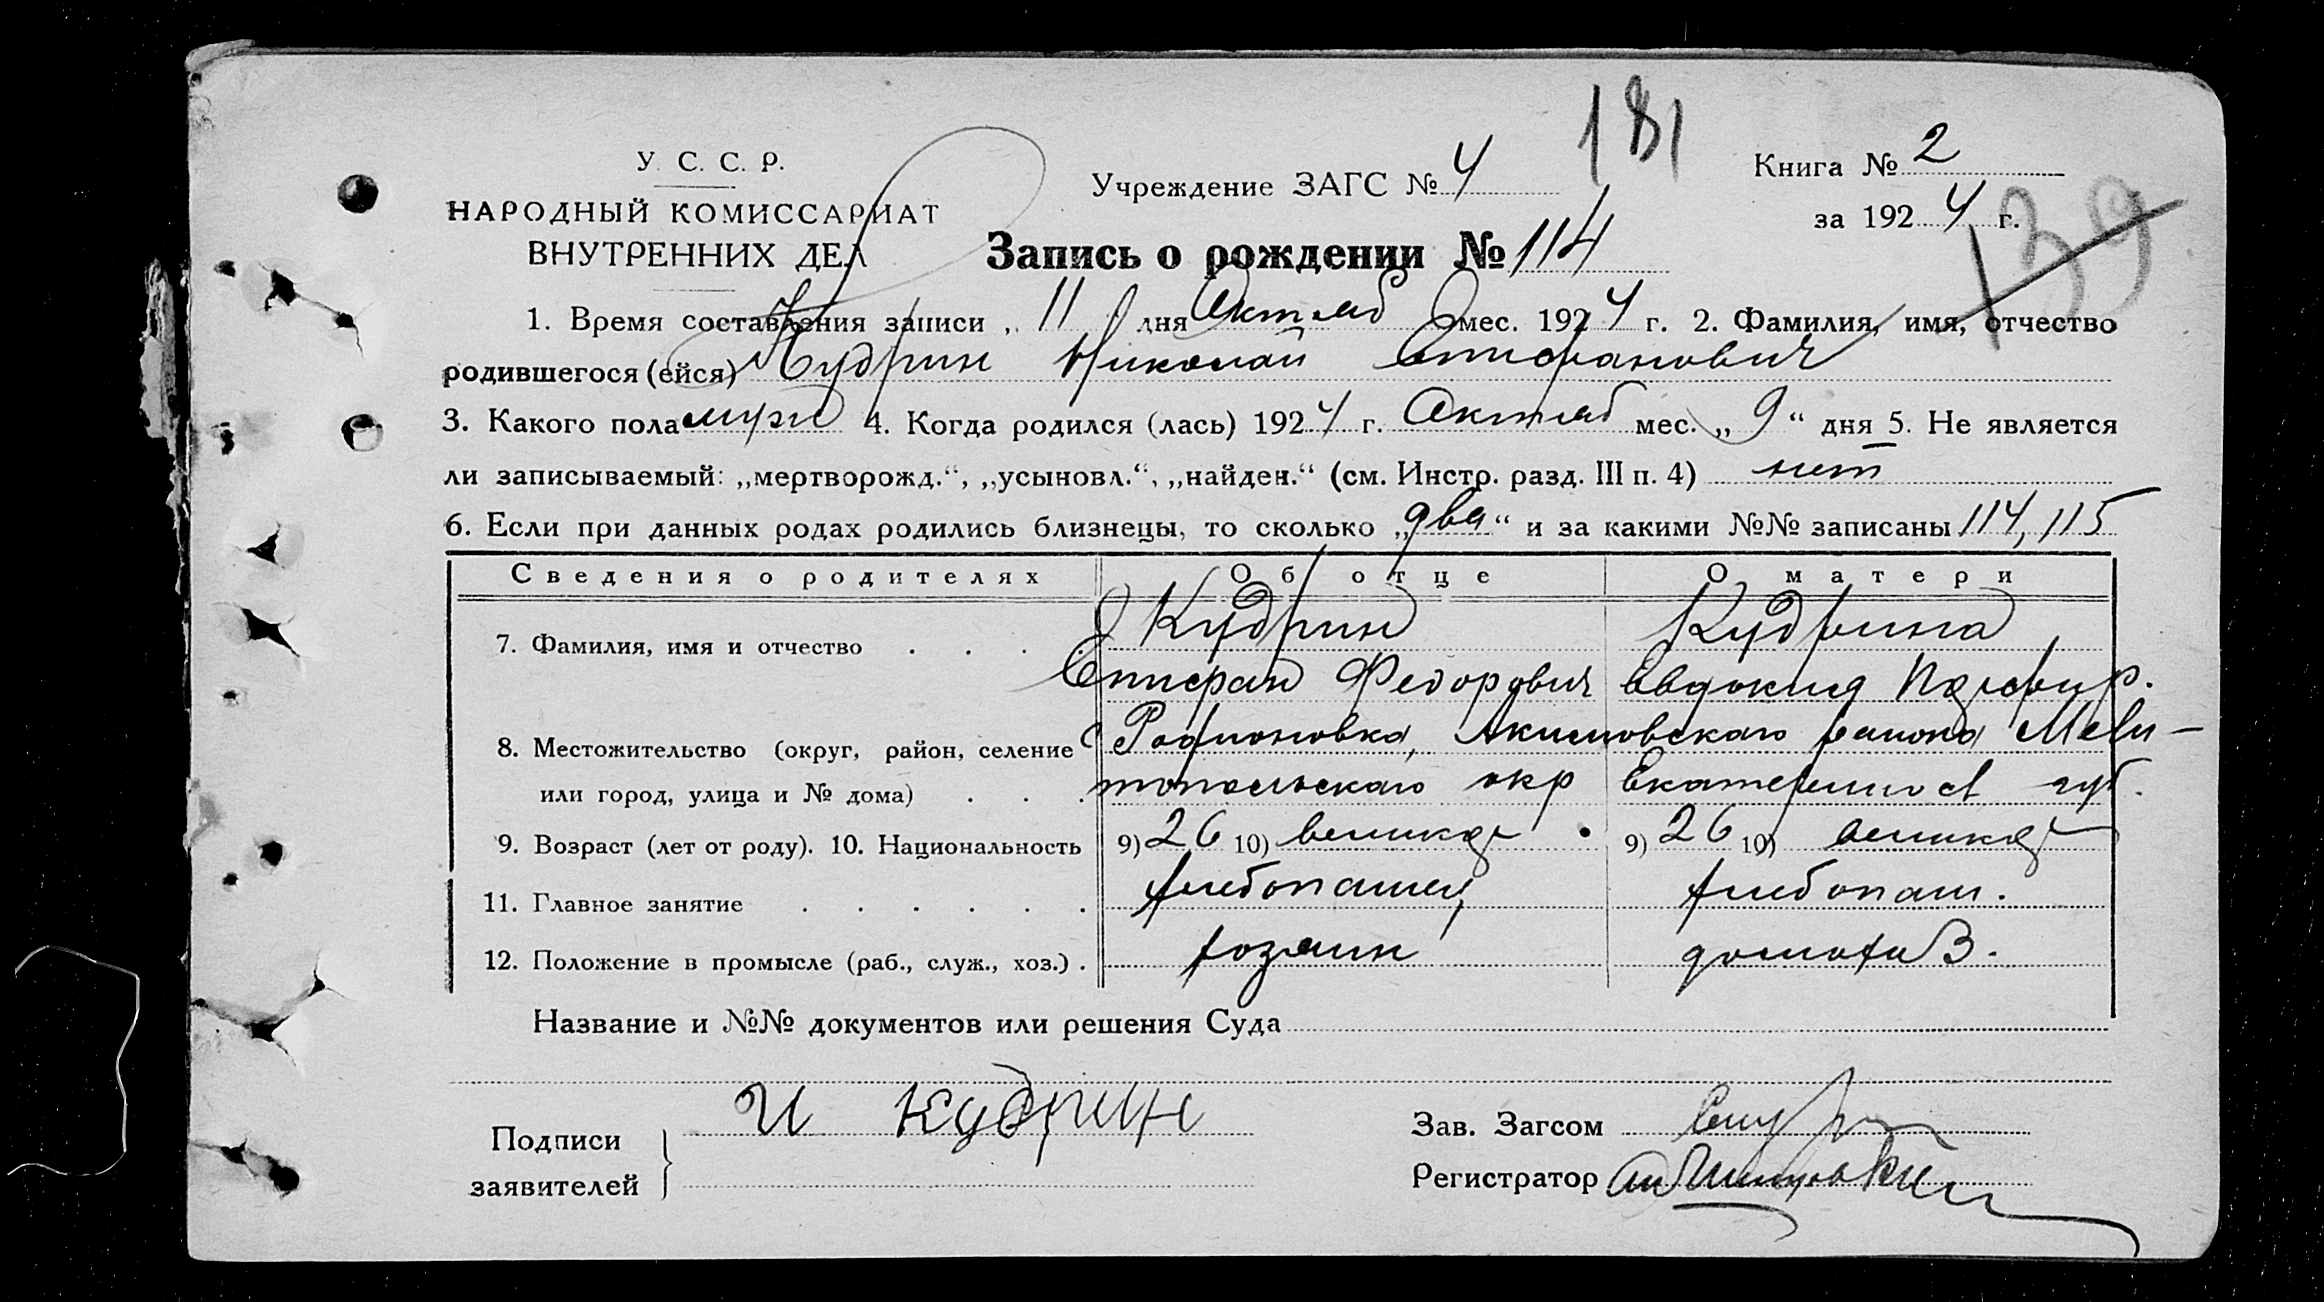 181
У. С. С. Р.
НАРОДНЫЙ КОМИССАРИАТ
ВНУТРЕННИХ ДЕЛ
Учреждение ЗАГС № 4
Книга № 2
за 1924 г.
139
Запись о рождении № 114
1. Время составления записи „ 11 дня Октяб мес. 1924 г. 2. Фамилия, имя, отчество
родившегося (ейся) Кудрин Николай Епифанович
3. Какого пола муж 4. Когда родился (лась) 1924 г. Октяб мес. „ 9 “ дня 5. Не является
ли записываемый: „мертворожд.“, „усыновл.“, „найден.“ (см. Инстр. разд. III п. 4) нет
6. Если при данных родах родились близнецы, то сколько „два“ и за какими №№ записаны 114, 115
Сведения о родителях Об отце О матери
7. Фамилия, имя и отчество . . . . Кудрин Кудрина
Епифан Федорович Евдокия
8. Местожительство (округ, район, селение с Родионовка, Акимовскаго района Мели-
или город, улица и № дома) . . . топольскаго окр Екатеринос губ.
9. Возраст (лет от роду). 10. Национальность 9) 26 10) великор 9) 26 10) великор
11. Главное занятие . . . . . . хлебопашец хлебопаш.
12. Положение в промысле (раб., служ., хоз.) . хозяин домохоз.
Название и №№ документов или решения Суда
Подписи
заявителей
И Кудрин
Зав. Загсом
Регистратор